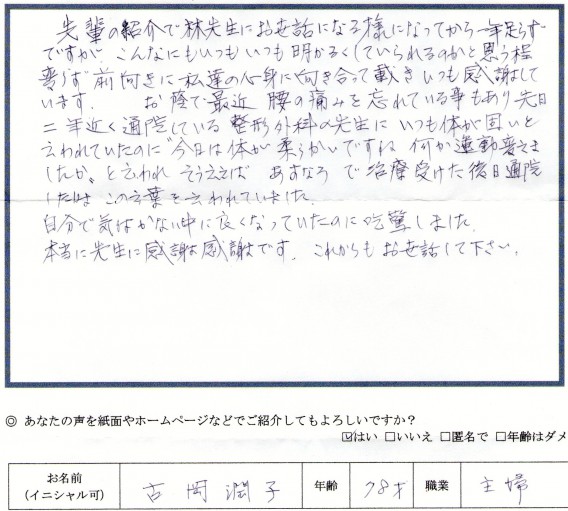 先輩の紹介で林先生にお世話になる様になってから一年足らず
ですが こんなにもいつもいつも明かるくしていられるのかと思う程
変らず前向きに私達の心身に向き合って戴きいつも感謝して
います. お蔭で最近 腰の痛みを忘れている事もあり先日
二年近く通院している整形外科の先生に いつも体が固いと
云われていたのに"今日は体が柔らかいですね 何か運動変えま
したか"と云われ そう云えば あすなろで治療受けた後日通院
した時はこの言葉を云われていました.
自分で気付かない中に良くなっていたのに吃驚しました.
本当に先生に感謝感謝です. これからもお世話して下さい.
◎ あなたの声を紙面やホームページなどでご紹介してもよろしいですか?
☑はい □いいえ □匿名で □年齢はダメ
お名前 (イニシャル可) 吉岡潤子 年齢 78才 職業 主婦